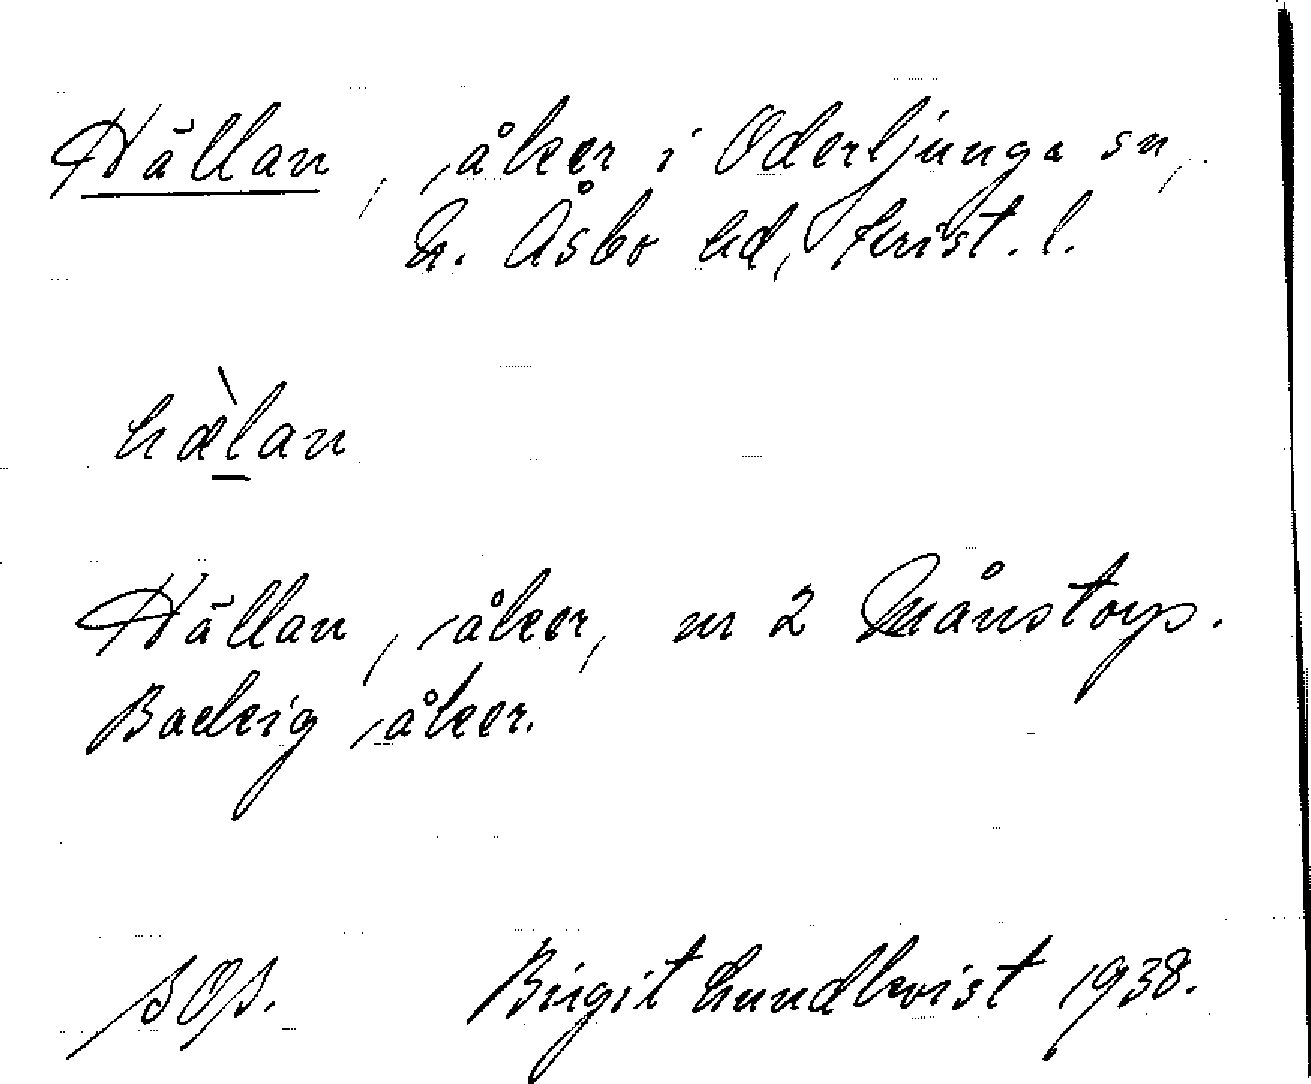 Hällan, åker i Oderljunga sn,
N. Åsbo hd, Krist. l.
hæ̀lan
Hällan, åker, nr 2 Månstorp.
Backig åker.
SOA.
Birgit Lundkvist 1938.